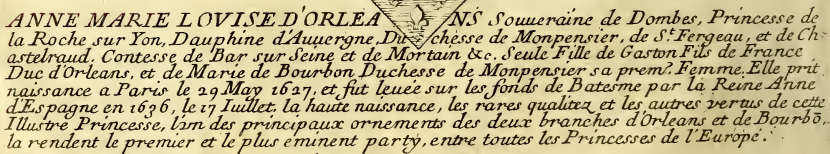 ANNE MARIE LOVISE D'ORLEANS Souueraine de Dombes, Princesse de
la Roche sur Yon, Dauphine d'Auuergne, Duchesse de Monpensier, de St. Fergeau, et de Ch=
astelraud. Contesse de Bar sur Seine et de Mortain &c. Seule Fille de Gaston Fils de France
Duc d'Orleans, et de Marie de Bourbon Duchesse de Monpensier sa prem.e Femme. Elle prit
naissance a Paris le 29 May 1627. et fut leuée sur les fonds de Batesme par la Reine Anne
d'Espagne en 1636, le 17 Iuillet. la haute naissance, les rares qualitez et les autres vertus de cette
Illustre Princesse, l'vn des principaux ornements des deux branches d'Orleans et de Bourbō,
la rendent le premier et le plus eminent party, entre toutes les Princesses de l'Europe.